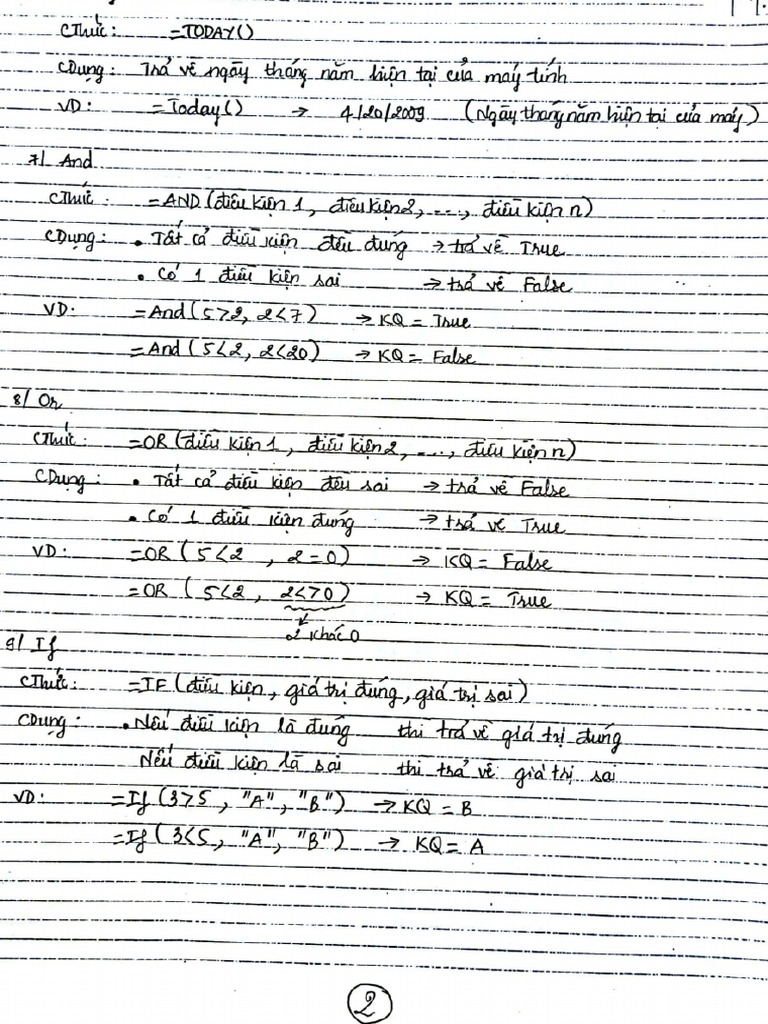 CThức: =TODAY()
CDụng: Trả về ngày tháng năm hiện tại của máy tính
VD: =Today() → 4/20/2009 (Ngày tháng năm hiện tại của máy)
7/ And
CThức: =AND(điều kiện 1, điều kiện 2, ..., điều kiện n)
CDụng: • Tất cả điều kiện đều đúng → trả về True
• Có 1 điều kiện sai → trả về False
VD: =And(5>2, 2<7) → KQ = True
=And(5<2, 2<20) → KQ = False
8/ Or
CThức: =OR(điều kiện 1, điều kiện 2, ..., điều kiện n)
CDụng: • Tất cả điều kiện đều sai → trả về False
• Có 1 điều kiện đúng → trả về True
VD: =OR(5<2, 2=0) → KQ = False
=OR(5<2, 2<>0) → KQ = True
2 khác 0
9/ If
CThức: =IF(điều kiện, giá trị đúng, giá trị sai)
CDụng: • Nếu điều kiện là đúng thì trả về giá trị đúng
Nếu điều kiện là sai thì trả về giá trị sai
VD: =If(3>5, "A", "B") → KQ = B
=If(3<5, "A", "B") → KQ = A
2